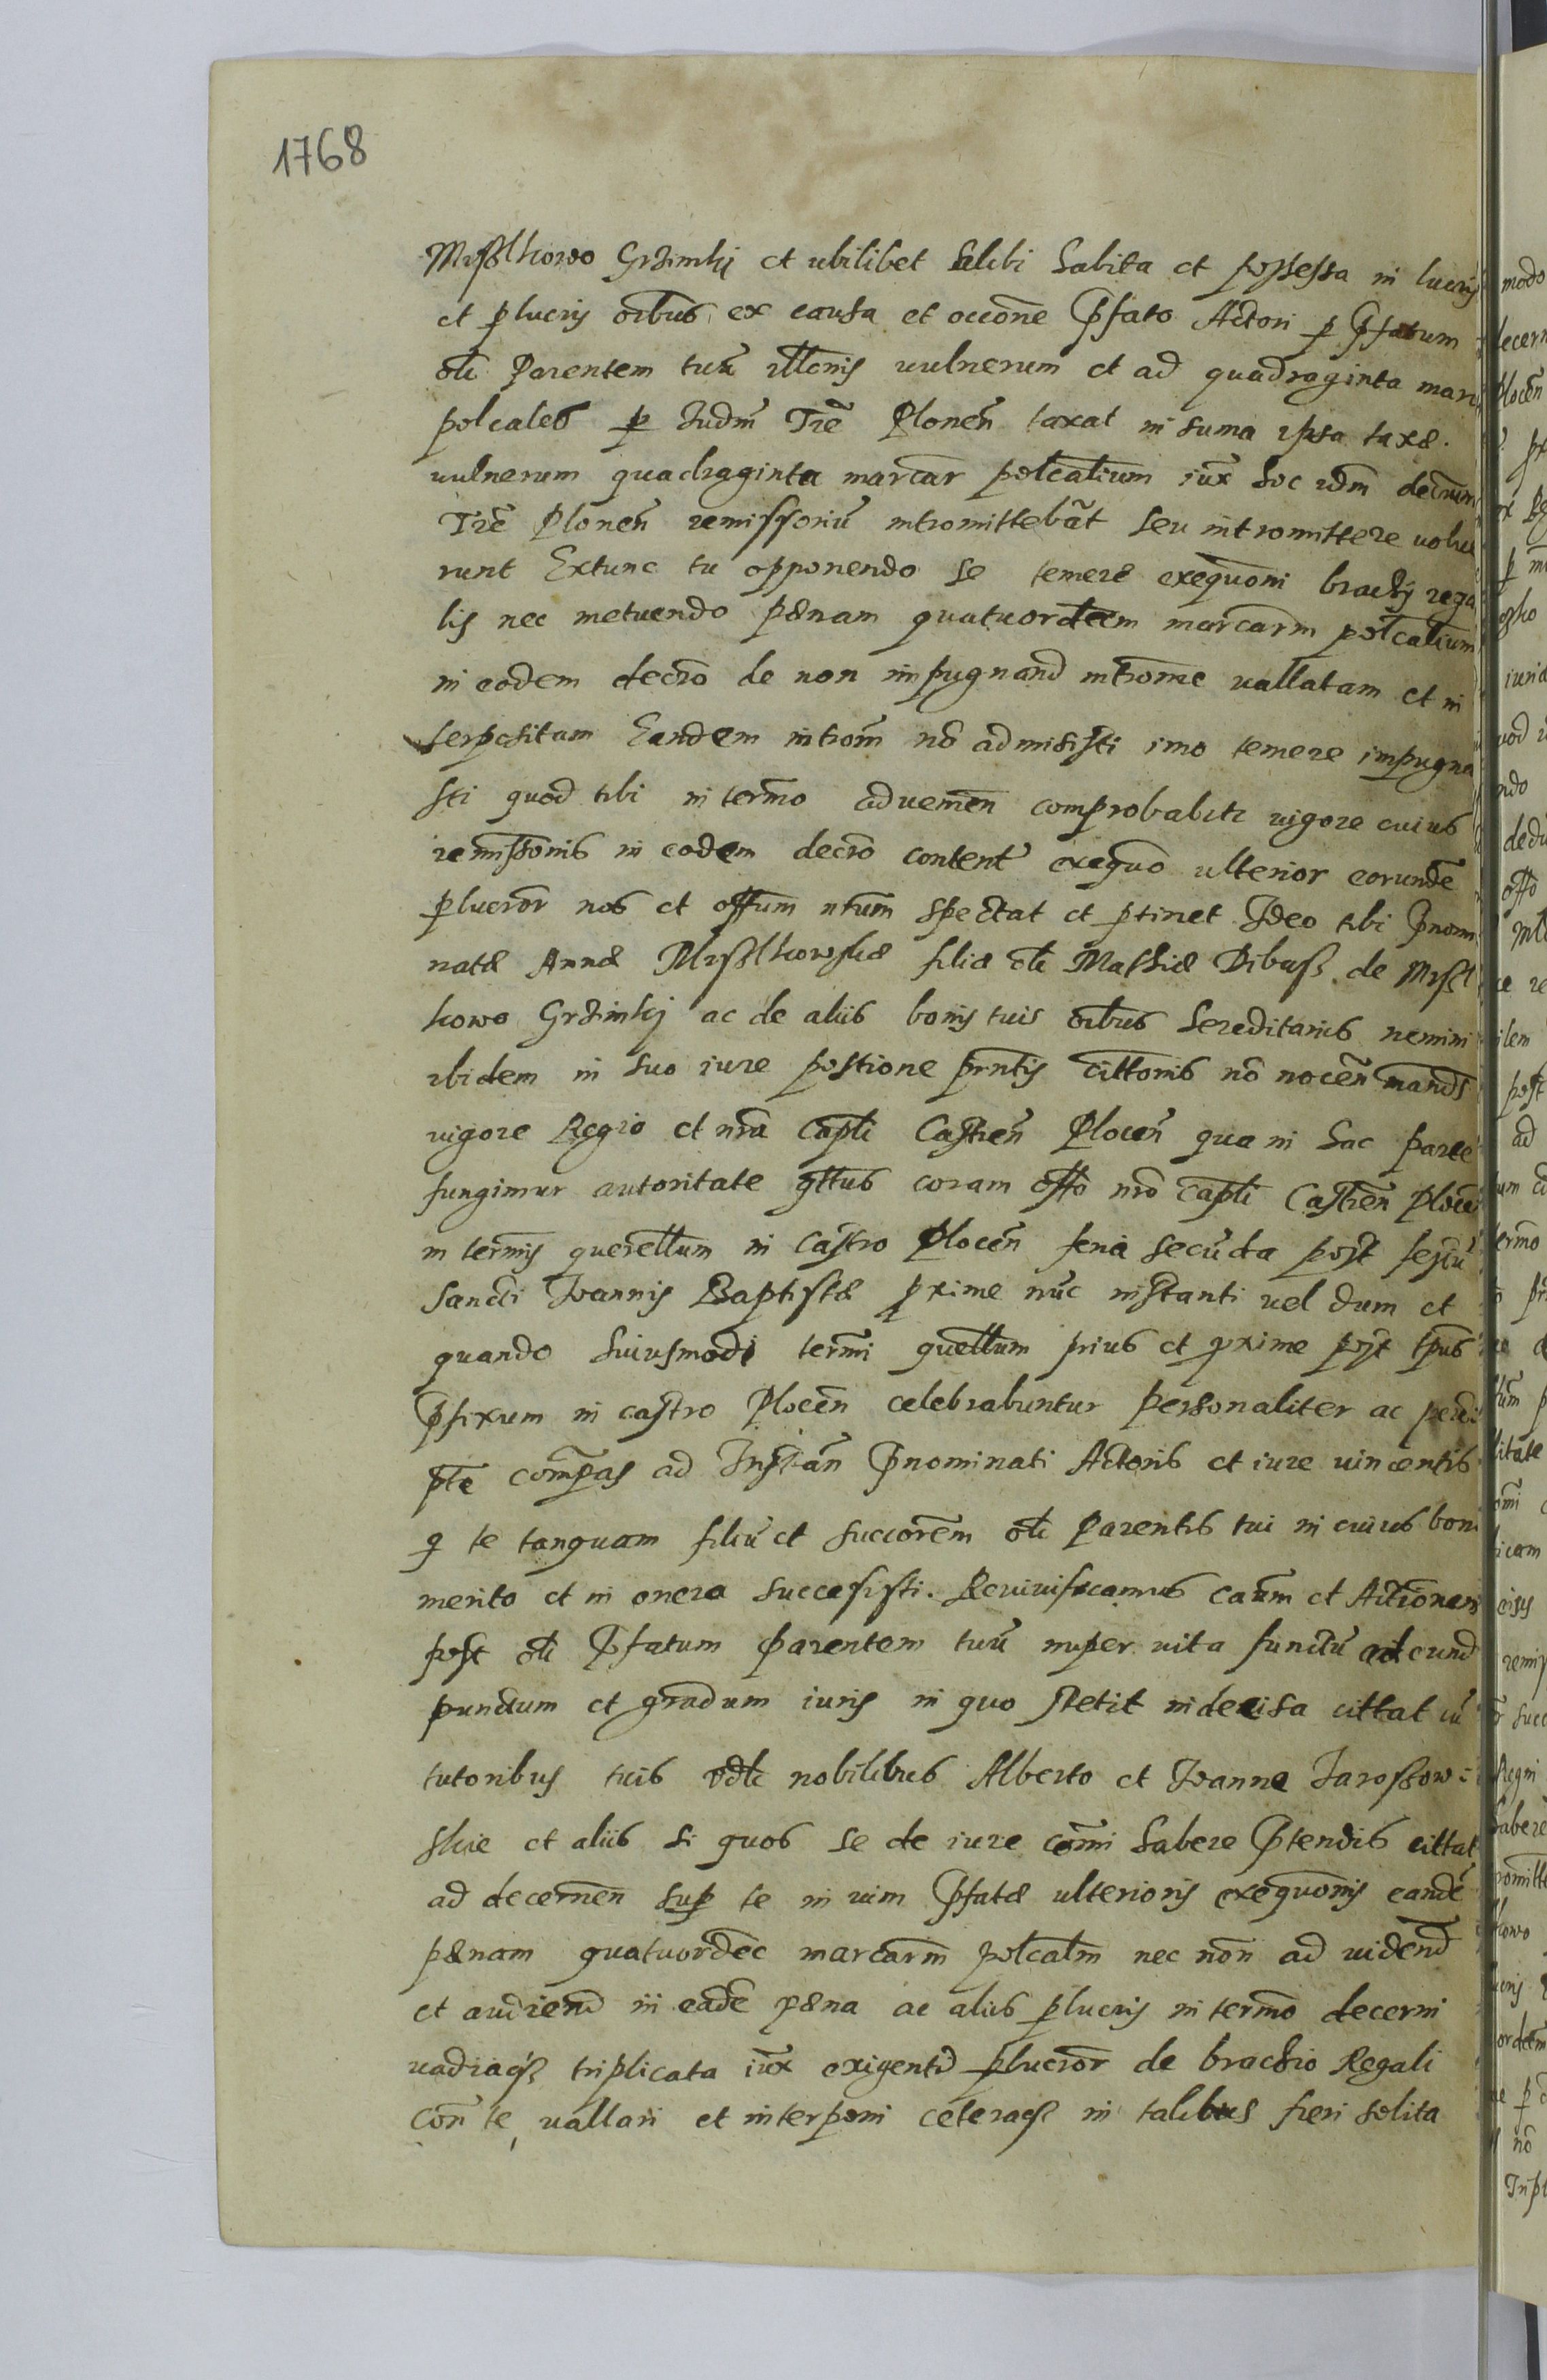 1768
Myslkowo Grzimki et ubilibet alibi habita et possessa in lucris
et plucris oibus ex causa et occone Pfato Actori p Pfatum
oli Parentem tuu illonis uulnerum et ad quadraginta marc
polcales p Judm Tre Plonen taxat in suma ipsa taxæ.
uulnerum quadraginta marcar polcalium iux hoc idm decrum
Tre Plonen remissoriu intromittebat seu intromittere uolue
runt Extunc tu opponendo se temeræ exequoni brachij rega
lis nec metuendo pænam quatuordecem marcarm polcalium
in eodem decro de non impugnand introme uallatam et in
terpositam Eandem introm no admisisti imo temere impugna
sti quod tibi in termo aduenien comprobabitr uigore cuius
remissionis in eodem decro content exequo ulterior eorunde
plucror nos et offum nrum spectat et ptinet Ideo tibi Pnomi
natæ Annæ Myslkowskæ filiæ oli Mathiæ Dibuss de Mysl
kowo Grzimkj ac de aliis bonis tuis oibus hereditariis nemini
ibidem in suo iure postione pntis cittonis no nocen mands
uigore Regio et nra Capli Castren Plocen qua in hac parte
fungimur autoritate qttus coram offo nro Capli Castren Plocen
in termis querellum in Castro Plocen feria secuda post festu
Sancti Joannis Baptistæ pxime nuc instanti uel dum et
quando huiusmodi termi quellum prius et pxime post tpus
Pfixum in castro Plocen celebrabuntur personaliter ac perem
pte compas ad Instan Pnominati Actoris et iure uincentis
q te tanquam filiu et succorem oli Parentis tui in cuius bona
merito et in onera successisti. Reuiuificamus Caum et Actionem
post oli Pfatum Parentem tuu nuper uita functu ad eund
punctum et gradum iuris in quo stetit indecisa cittat cu
tutoribus tuis vdle nobilibus Alberto et Joanne Jarossow
skie et aliis si quos se de iure comi habere Ptendis cittat
ad decernen sup te in uim Pfatæ ulterioris exequonis eande
pænam quatuordec marcarm polcalm nec non ad uidend
et audiend in eade pæna ac aliis plucris in termo decerni
uadiaqz triplicata iux exigentia plucror de brachio Regali
con te uallari et interponi ceteraqz in talibus fieri solita